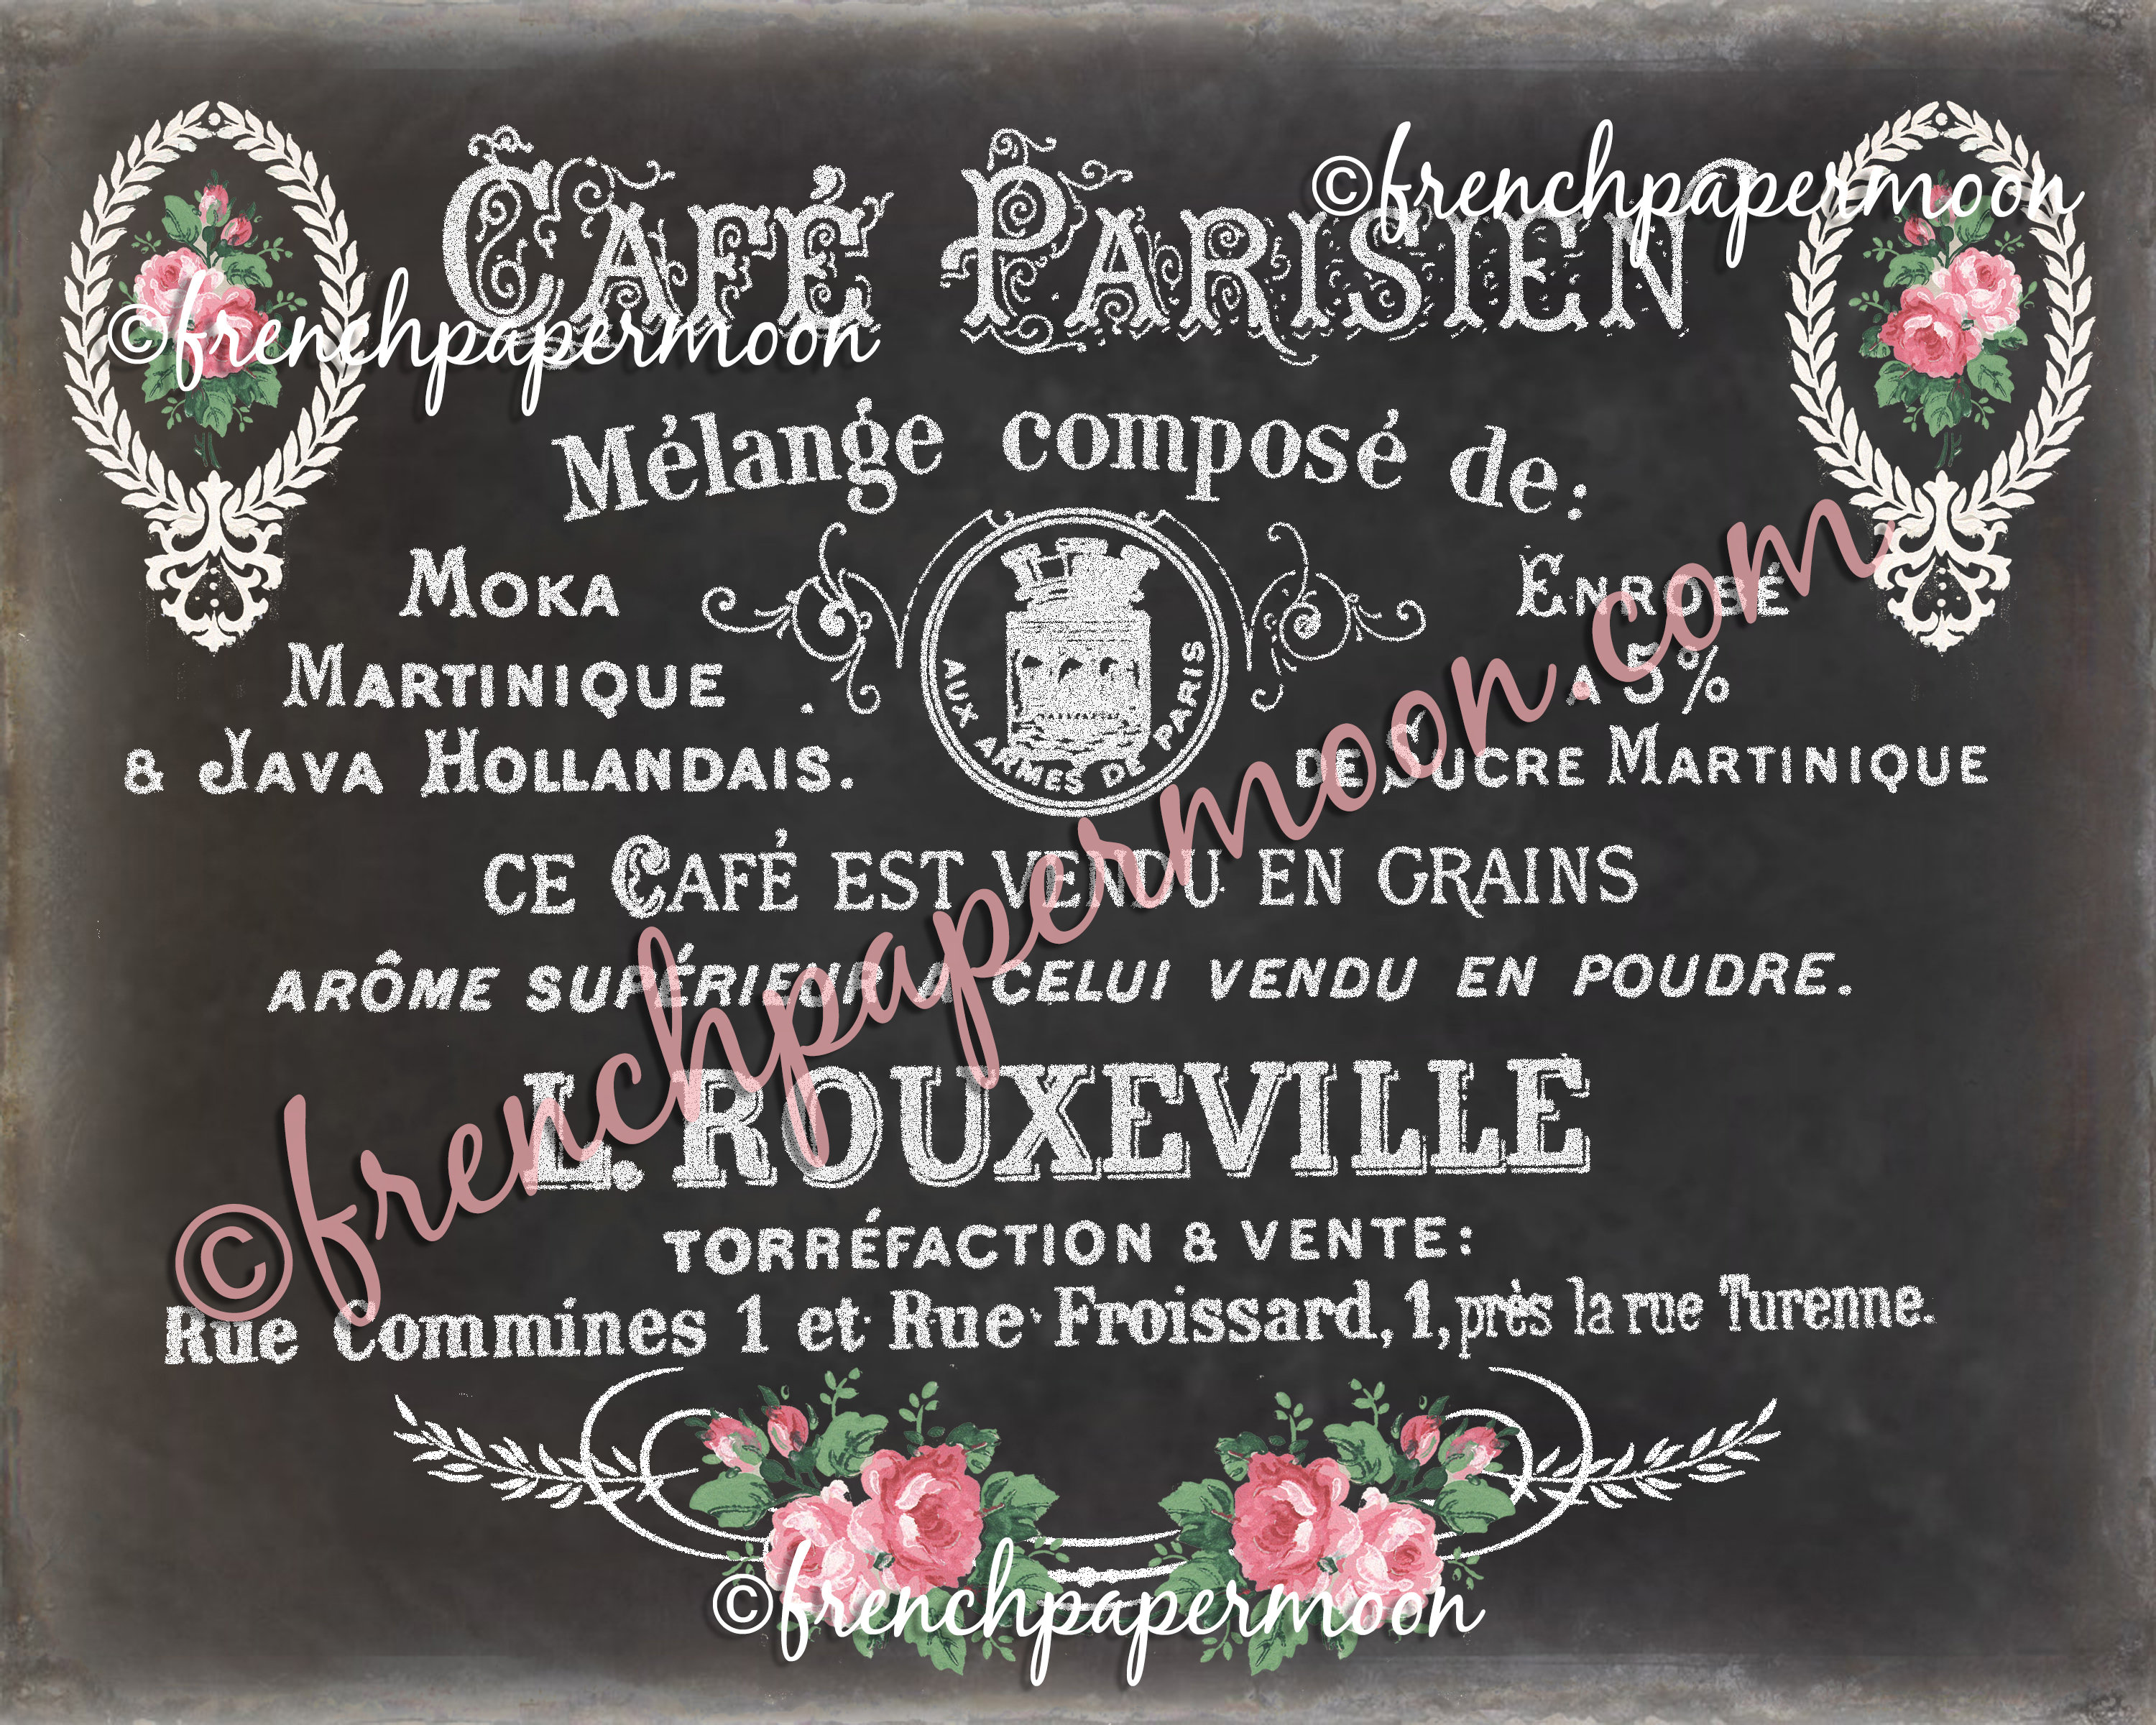 ©frenchpapermoon
CAFÉ PARISIEN
©frenchpapermoon
Mélange composé de:
MOKA
MARTINIQUE
& JAVA HOLLANDAIS.
AUX ARMES DE PARIS
ENROBÉ
A 5%
DE SUCRE MARTINIQUE
CE CAFÉ EST VENDU EN GRAINS
ARÔME SUPÉRIEUR A CELUI VENDU EN POUDRE.
©frenchpapermoon.com
L. ROUXEVILLE
TORRÉFACTION & VENTE:
Rue Commines 1 et Rue Froissard, 1, près la rue Turenne.
©frenchpapermoon